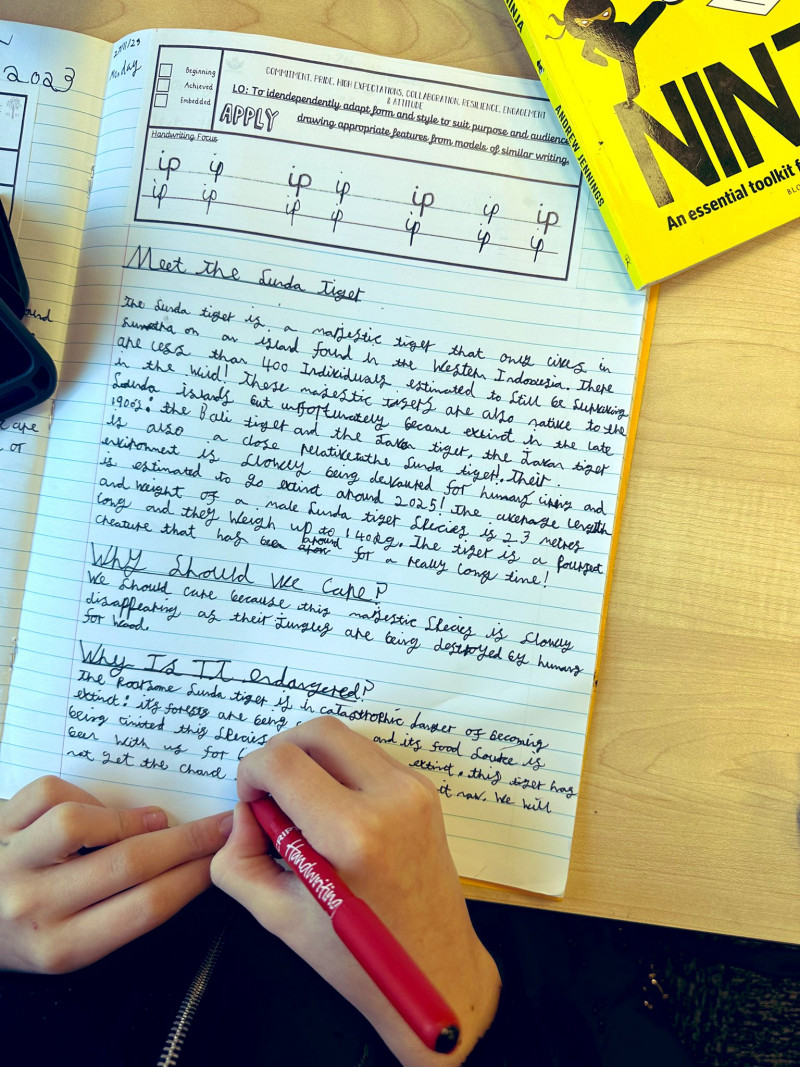 2023
27/11/23
Monday
Beginning
Achieved
Embedded
COMMITMENT, PRIDE, HIGH EXPECTATIONS, COLLABORATION, RESILIENCE, ENGAGEMENT
& ATTITUDE
LO: To idendependently adapt form and style to suit purpose and audience
APPLY
drawing appropriate features from models of similar writing.
Handwriting Focus
ip ip ip ip ip ip ip
ip ip ip ip ip ip ip
Meet the Sunda Tiger
The Sunda tiger is a majestic tiger that only lives in
Sumatra on an island found in the Western Indonesia. There
are less than 400 Individuals estimated to still be surviving
in the wild! These majestic tigers are also native to the
Sunda islands but unfortunately became extinct in the late
1900s: the Bali tiger and the Javan tiger. the Javan tiger
is also a close relative to the Sunda tiger. Their
enviroment is slowley being devoured for humans living and
is estimated to go extinct around 2025! The average length
and weight of a male Sunda tiger species is 2.3 metres
long and they weigh up to 140kg. The tiger is a
creature that has been around for a really long time!
Why Should We Care?
We should care because this majestic species is slowly
disappearing as their jungles are being destroyed by humans
for wood.
Why Is It endangered?
The Sunda tiger is in catastrophic danger of becoming
extinct: its forests are being and its food source is
being limited this species extinct. this tiger has
been with us for it now. We will
not get the chance
NINJA
ANDREW JENNINGS
NIN
An essential toolkit f
BLO
Handwriting